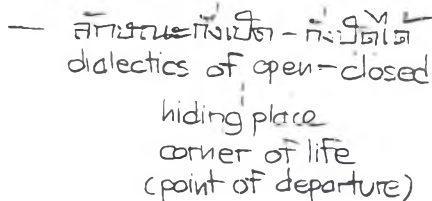 — ลักษณะกึ่งเปิด - กึ่งปิดได้
dialectics of open-closed
hiding place
corner of life
(point of departure)